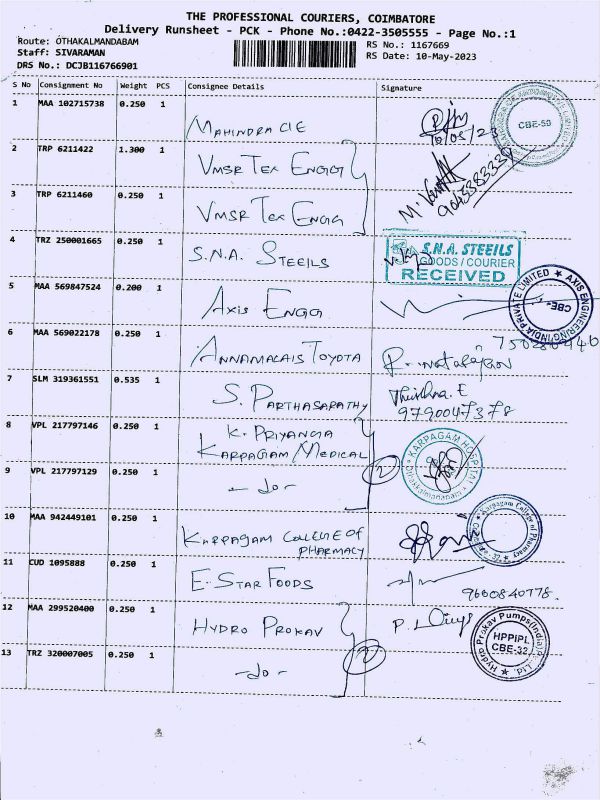 THE PROFESSIONAL COURIERS, COIMBATORE
Delivery Runsheet - PCK - Phone No.:0422-3505555 - Page No.:1
Route: OTHAKALMANDABAM
RS No.: 1167669
Staff: SIVARAMAN
RS Date: 10-May-2023
DRS No.: DCJB116766901
S No Consignment No Weight PCS Consignee Details Signature
1 MAA 102715738 0.250 1
MAHINDRA CIE
10/05/23
CBE-50
2 TRP 6211422 1.300 1
VMSR TEX ENGG
3 TRP 6211460 0.250 1
VMSR TEX ENGG
9043383330
4 TRZ 250001665 0.250 1
S.N.A. STEEILS
S.N.A. STEEILS
GOODS / COURIER
RECEIVED
5 MAA 569847524 0.200 1
AXIS ENGG
AXIS ENGINEERING(INDIA)PRIVATE LIMITED
CBE-
6 MAA 569022178 0.250 1
ANNAMALAIS TOYOTA
R. Natarajan
7 SLM 319361551 0.535 1
S. PARTHASARATHY
E
9790047378
8 VPL 217797146 0.250 1
K. PRIYANGA
KARPAGAM MEDICAL
2
KARPAGAM HOSPITAL
9 VPL 217797129 0.250 1
- do -
10 MAA 942449101 0.250 1
KARPAGAM COLLEGE OF
PHARMACY
Karpagam College of Pharmacy
11 CUD 1095888 0.250 1
E-STAR FOODS
9600840778.
12 MAA 299520400 0.250 1
HYDRO PROKAV
2
Hydro Prokav Pumps(India)
HPPIPL
CBE-32
13 TRZ 320007005 0.250 1
- do -